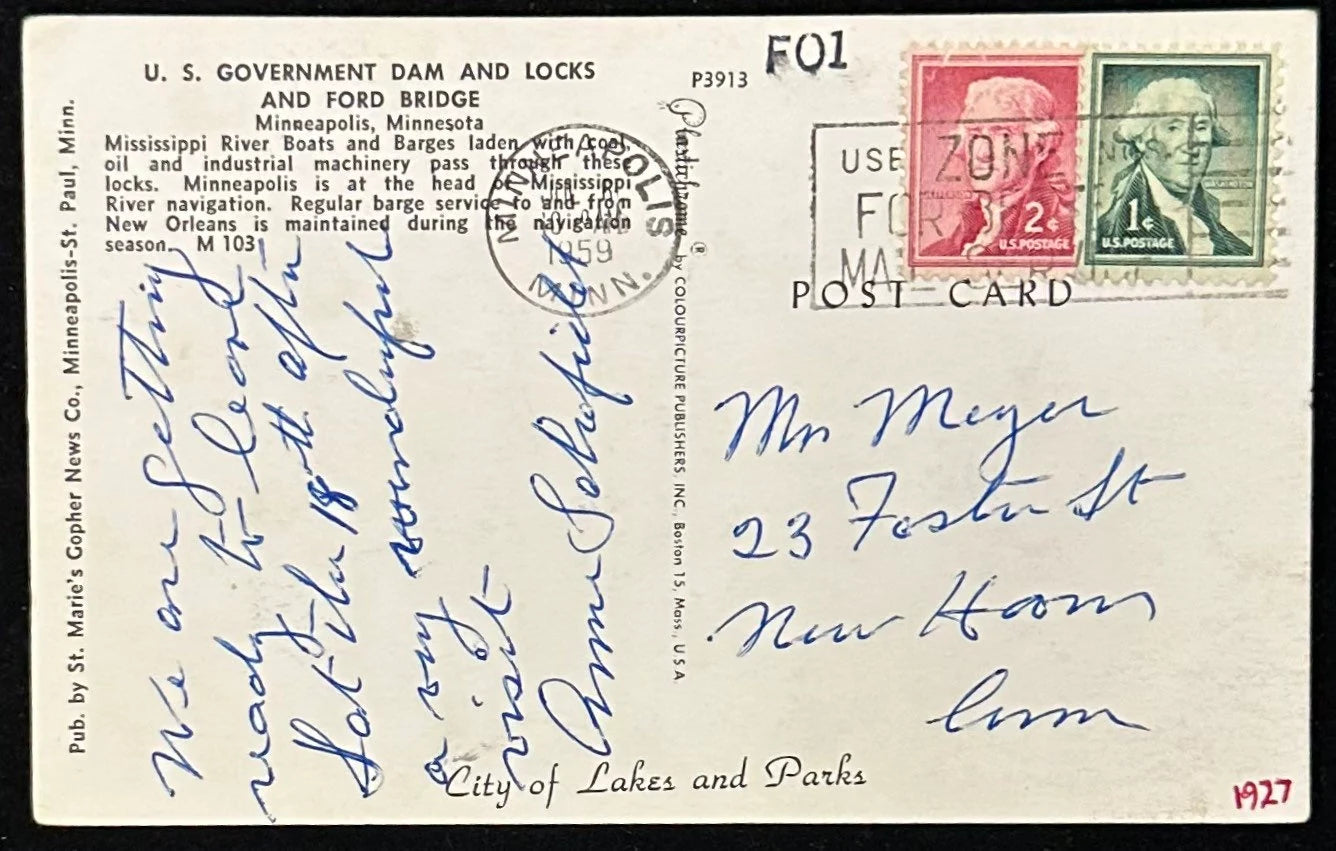 U. S. GOVERNMENT DAM AND LOCKS
AND FORD BRIDGE
Minneapolis, Minnesota
Mississippi River Boats and Barges laden with coal,
oil and industrial machinery pass through these
locks. Minneapolis is at the head of Mississippi
River navigation. Regular barge service to and from
New Orleans is maintained during the navigation
season. M 103
Pub. by St. Marie's Gopher News Co., Minneapolis-St. Paul, Minn.
We are getting
ready to leave
Sat the 18th after
a very wonderful
visit
Anne Schofield
MINNEAPOLIS
1959
MINN.
P3913
F01
Plastichrome ® by COLOURPICTURE PUBLISHERS, INC., Boston 15, Mass., U.S.A.
USE ZONE
FOR
MA
2¢
U.S.POSTAGE
WASHINGTON
1¢
U.S.POSTAGE
POST CARD
Mr Meyer
23 Foster St
New Haven
Conn
City of Lakes and Parks
1927